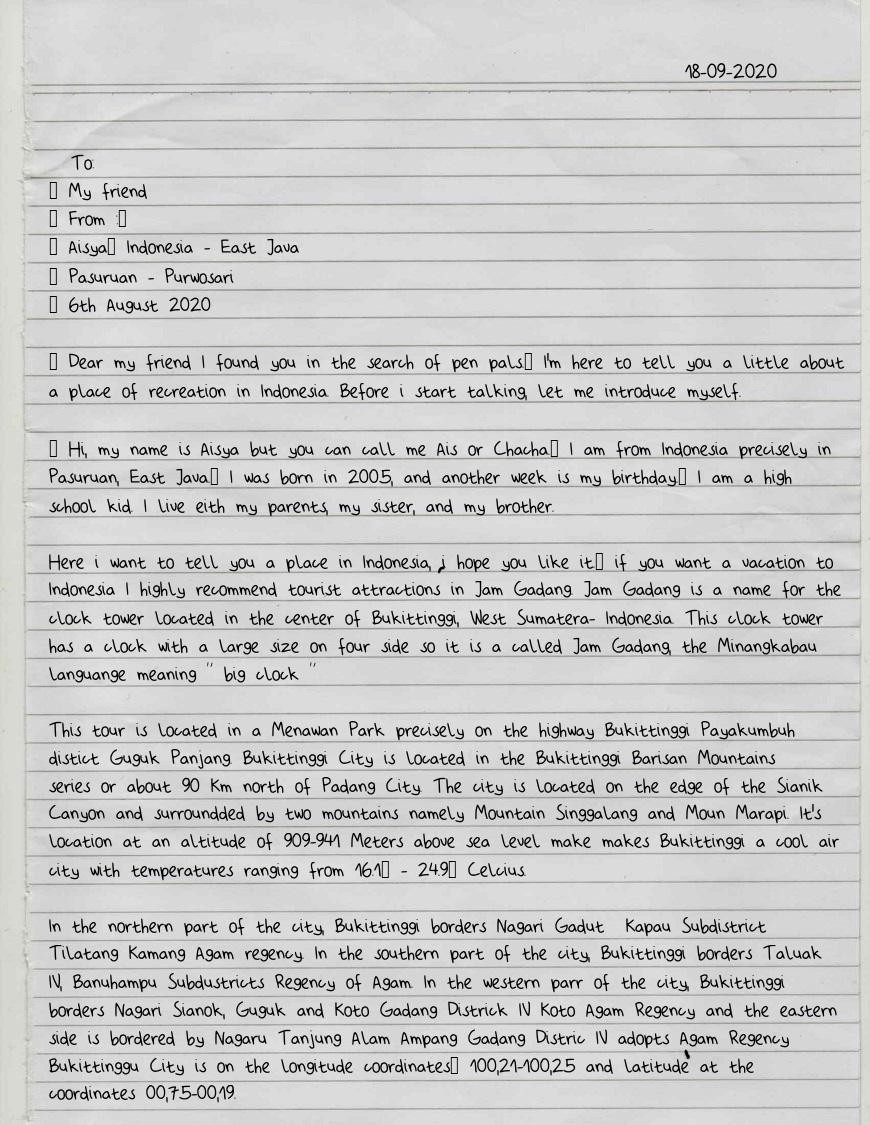 18-09-2020
To:
▯ My friend
▯ From :▯
▯ Aisya▯ Indonesia - East Java
▯ Pasuruan - Purwosari
▯ 6th August 2020
▯ Dear my friend I found you in the search of pen pals▯ I'm here to tell you a little about
a place of recreation in Indonesia. Before i start talking, let me introduce myself.
▯ Hi, my name is Aisya but you can call me Ais or Chacha▯ I am from Indonesia precisely in
Pasuruan, East Java▯ I was born in 2005, and another week is my birthday▯ I am a high
school kid. I live eith my parents, my sister, and my brother.
Here i want to tell you a place in Indonesia, i hope you like it▯ if you want a vacation to
Indonesia I highly recommend tourist attractions in Jam Gadang. Jam Gadang is a name for the
clock tower located in the center of Bukittinggi, West Sumatera- Indonesia. This clock tower
has a clock with a large size on four side so it is a called Jam Gadang, the Minangkabau
languange meaning " big clock "
This tour is located in a Menawan Park precisely on the highway Bukittinggi Payakumbuh
distict Guguk Panjang. Bukittinggi City is located in the Bukittinggi Barisan Mountains
series or about 90 Km north of Padang City. The city is located on the edge of the Sianik
Canyon and surroundded by two mountains namely Mountain Singgalang and Moun Marapi. It's
location at an altitude of 909-941 Meters above sea level make makes Bukittinggi a cool air
city with temperatures ranging from 16.1▯ - 24.9▯ Celcius.
In the northern part of the city, Bukittinggi borders Nagari Gadut Kapau Subdistrict
Tilatang Kamang Agam regency. In the southern part of the city, Bukittinggi borders Taluak
IV, Banuhampu Subdustricts Regency of Agam. In the western parr of the city, Bukittinggi
borders Nagari Sianok, Guguk and Koto Gadang Districk IV Koto Agam Regency and the eastern
side is bordered by Nagaru Tanjung Alam Ampang Gadang Distric IV adopts Agam Regency
Bukittinggu City is on the longitude coordinates▯ 100,21-100,25 and latitude at the
coordinates 00,75-00,19.